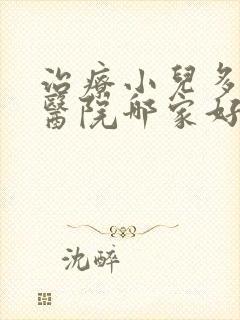 治療小兒多
醫院哪家好
沈醉